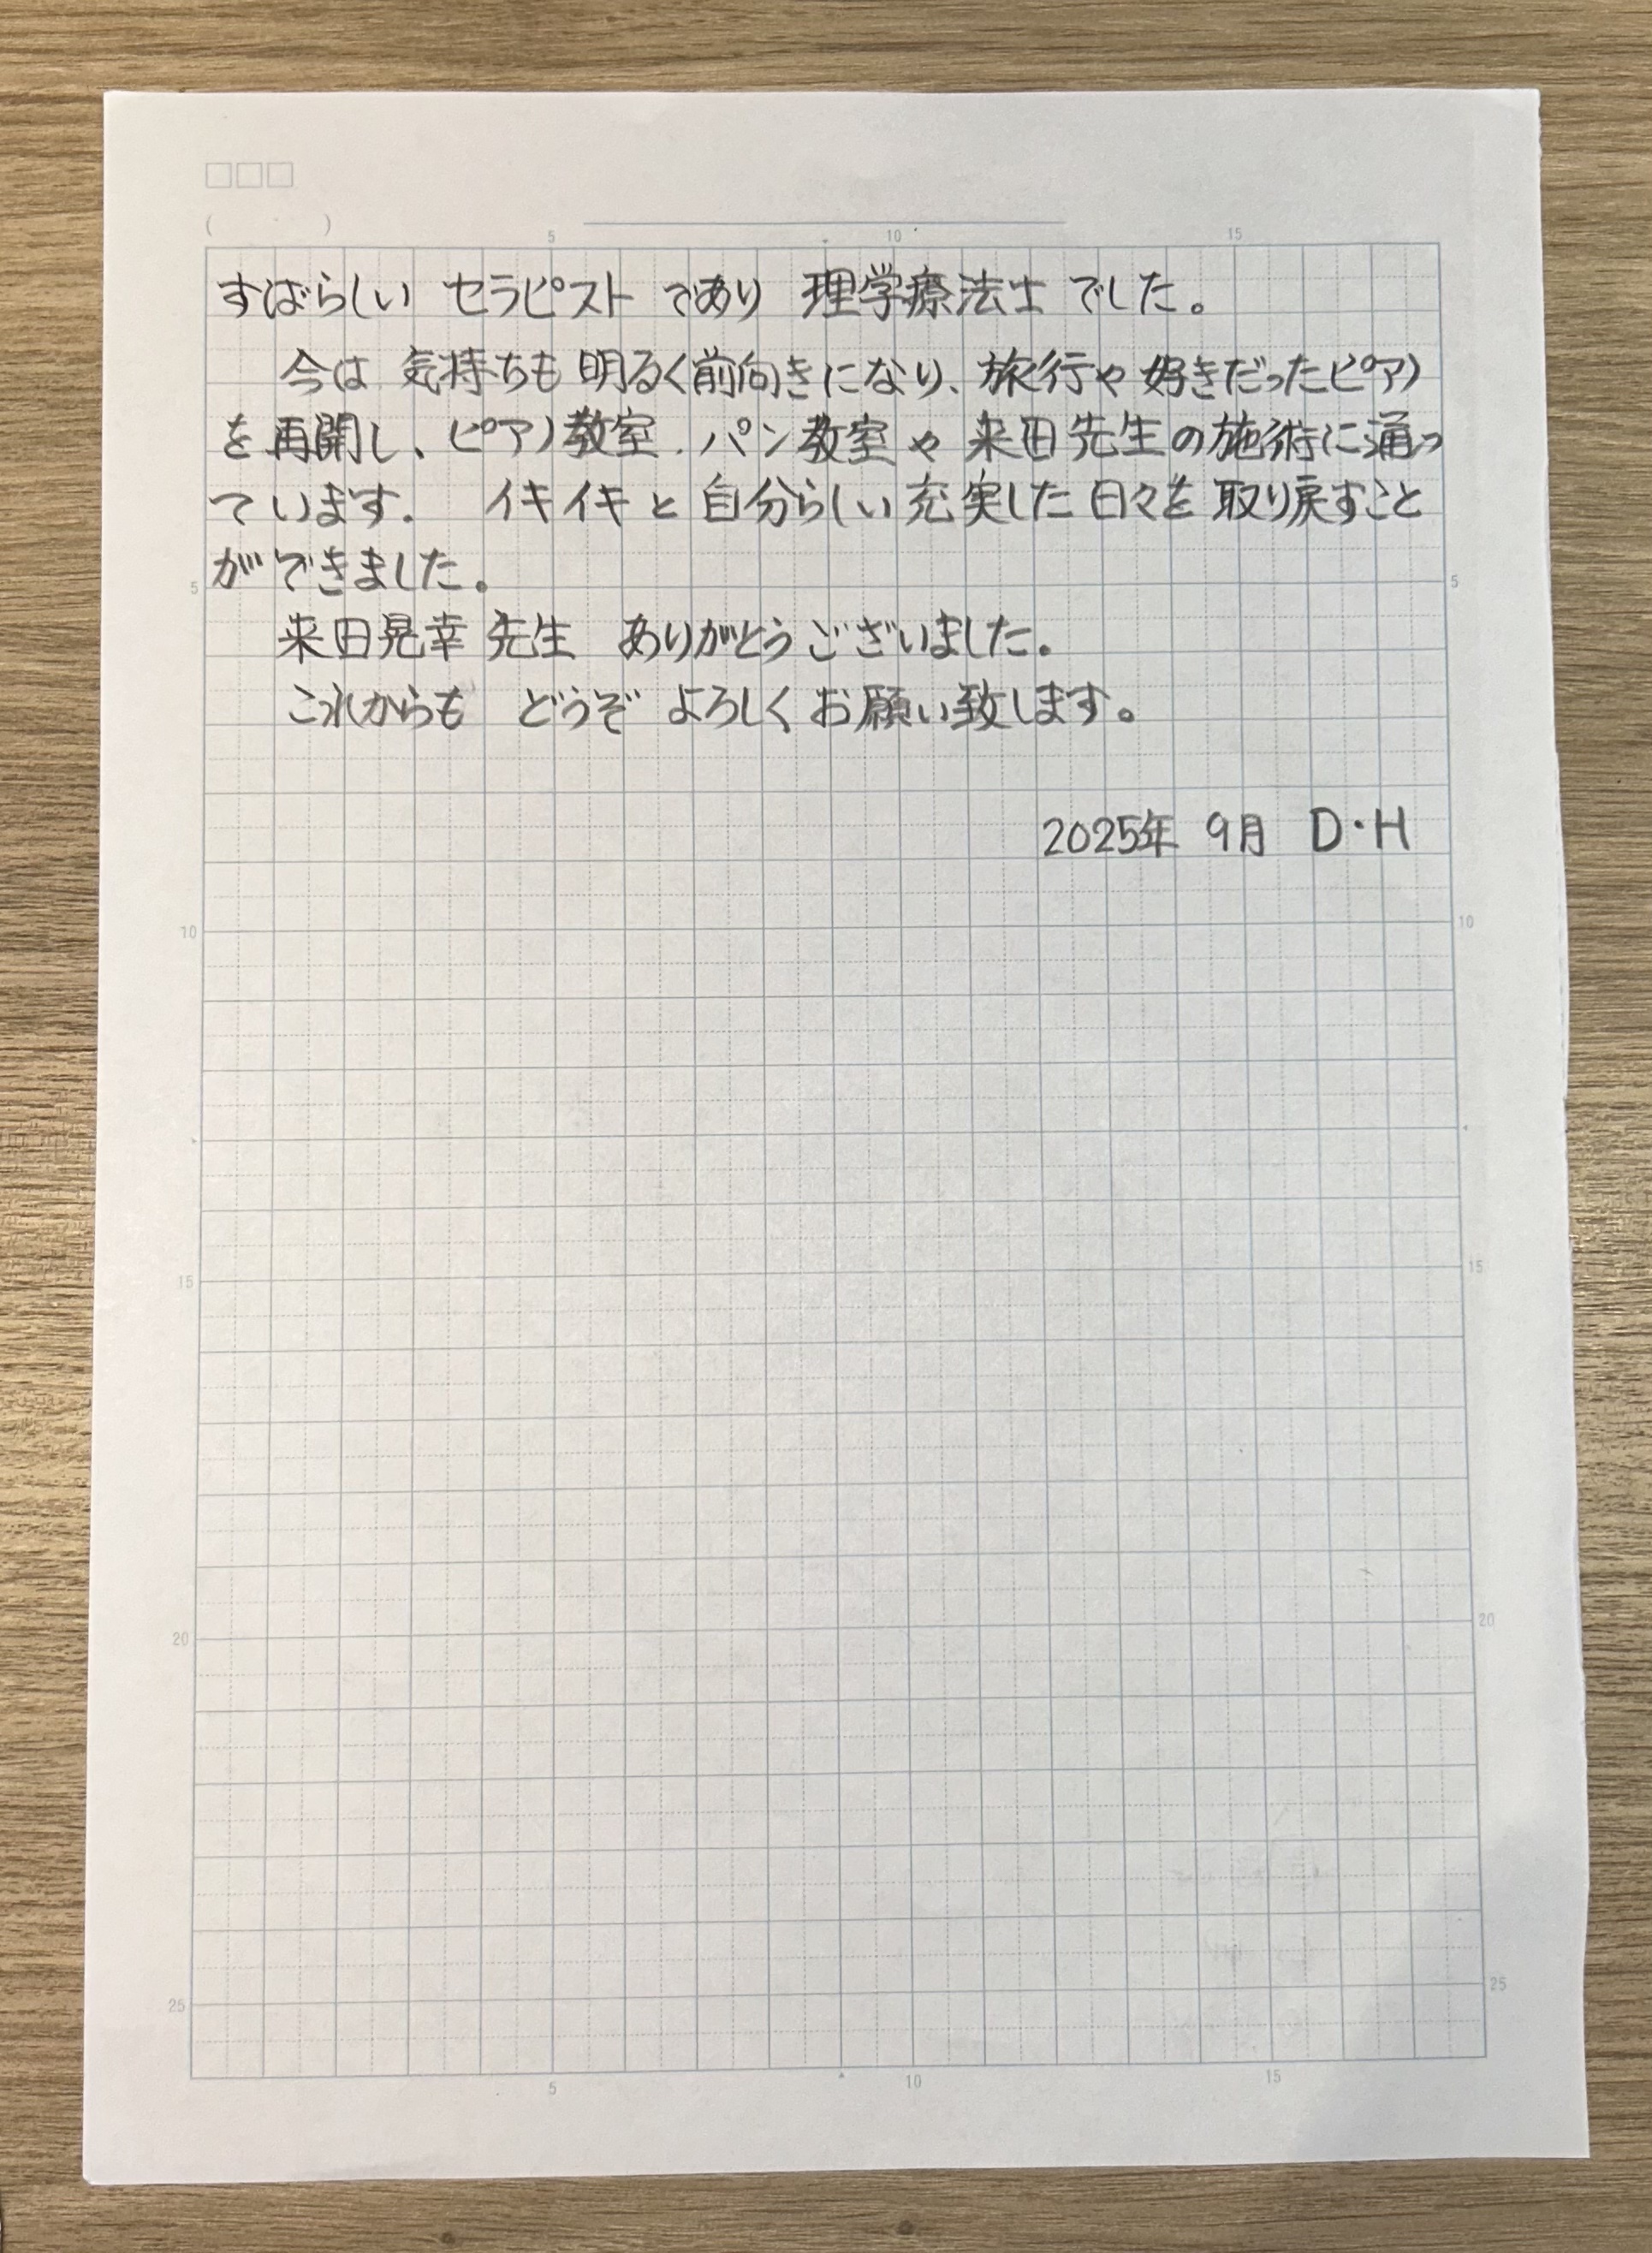 □□□
( )
5 10 15
すばらしい セラピスト であり 理学療法士 でした。
今は 気持ちも 明るく前向きになり、旅行や 好きだったピアノ
を再開し、ピアノ教室、パン教室や 来田先生の施術に通っ
ています. イキイキと 自分らしい 充実した 日々を 取り戻すこと
5 ができました。 5
来田晃幸 先生 ありがとうございました.
これからも どうぞ よろしく お願い致します。
2025年 9月 D・H
10 10
15 15
20 20
25 25
5 10 15